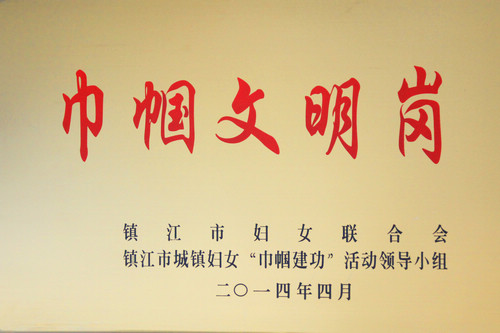 巾帼文明岗
镇江市妇女联合会
镇江市城镇妇女“巾帼建功”活动领导小组
二〇一四年四月